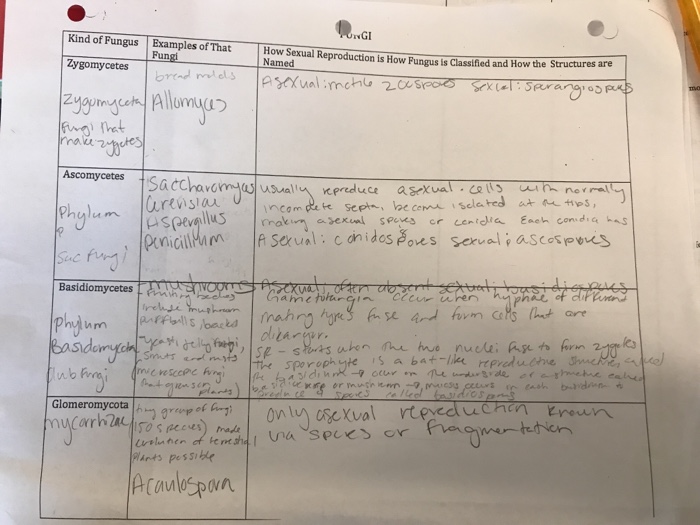 FUNGI
Kind of Fungus
Examples of That
Fungi
How Sexual Reproduction is How Fungus is Classified and How the Structures are
Named
Zygomycetes
Zygomycota
Fungi that
make zygotes
bread molds
Allomyces
Asexual: motile zoospores sexual: sporangiospores
Ascomycetes
Phylum
Sac fungi
Saccharomyces
Cerevisiae
Aspergillus
Penicillium
usually reproduce asexual. cells with normally
incomplete septa, become isolated at the tips,
making asexual spores or conidia Each conidia has
Asexual: conidospores sexual: ascospores
Basidiomycetes
Phylum
Basidomycota
Club fungi
mushrooms
fruiting bodies
include mushroom
puffballs,
yeast, jelly fungi,
smuts and rusts
microscopic fungi
plants)
Asexual: often absent sexual: basidiospores
Gametangia occur when hyphae of different
mating types fuse and form cells that are
dikaryor.
SR - starts when the two nuclei fuse to form zygotes
the sporophyte is a bat-like reproductive structure, called
the basidium → occur on the underside of a structure called
or mushroom → meiosis occurs in each basidium to
produce spores called basidiospores
Glomeromycota
mycorrhizae
tiny group of fungi
(150 species) made
evolution of terrestrial
plants possible
Acaulospora
only asexual reproduction known
via spores or fragmentation